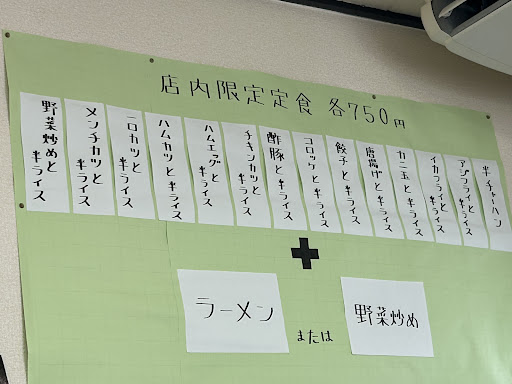 店内限定定食 各750円
半チャーハン
アジフライと半ライス
イカフライと半ライス
カニ玉と半ライス
唐揚げと半ライス
餃子と半ライス
コロッケと半ライス
酢豚と半ライス
チキンカツと半ライス
ハムエッグと半ライス
ハムカツと半ライス
一口カツと半ライス
メンチカツと半ライス
野菜炒めと半ライス
+
ラーメン または 野菜炒め